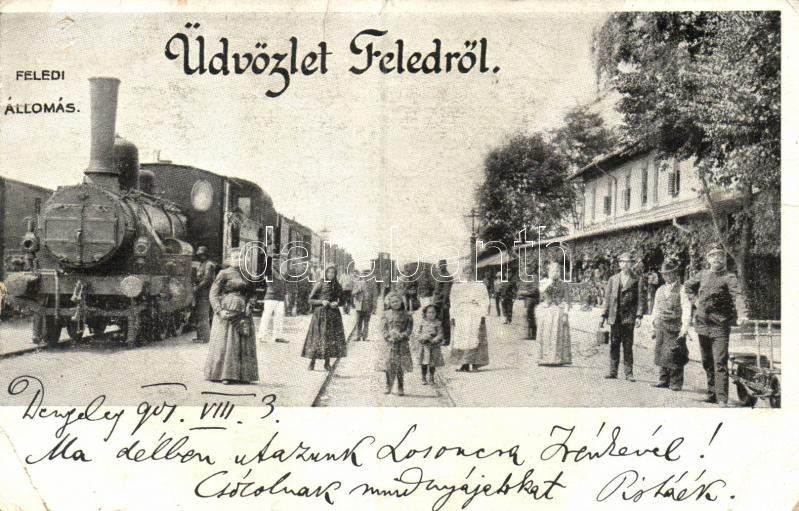 Üdvözlet Feledről.
FELEDI
ÁLLOMÁS.
darabanth
907. VIII. 3.
Ma délben utazunk Losoncra Irénkével!
Csócolnak mindnyájatokat Pistáék.